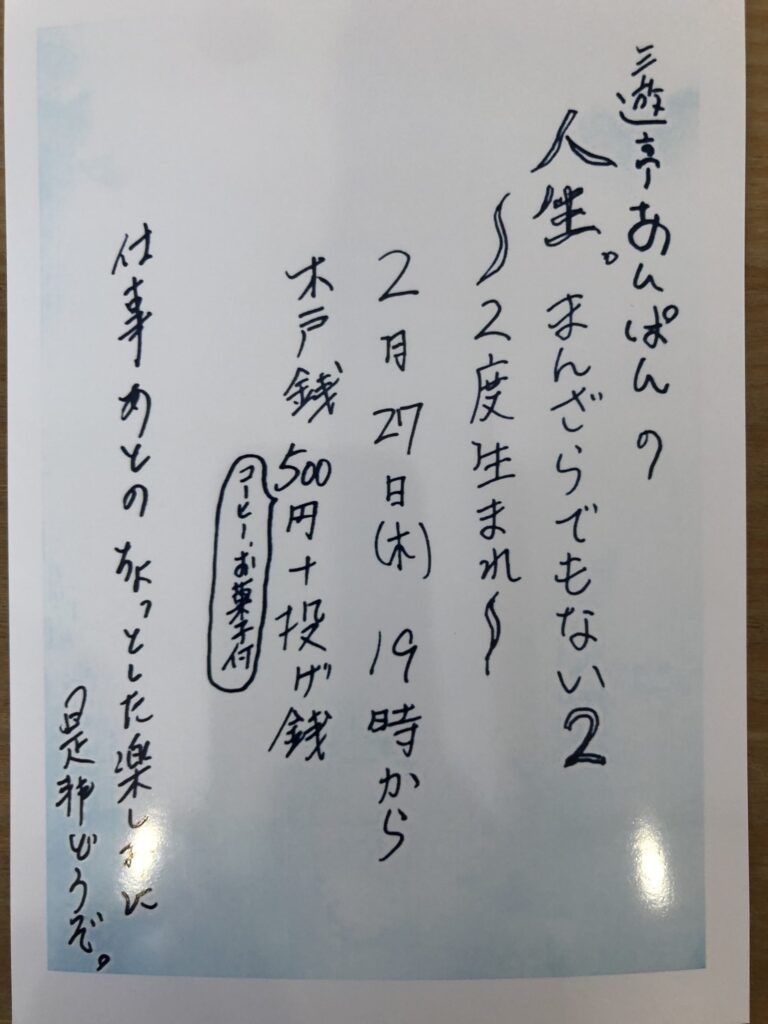 三遊亭あんぱんの
人生。まんざらでもない2
〜2度生まれ〜
2月27日(木) 19時から
木戸銭 500円+投げ銭
コーヒー、お菓子付
仕事あとのちょっとした楽しみに
是非どうぞ。